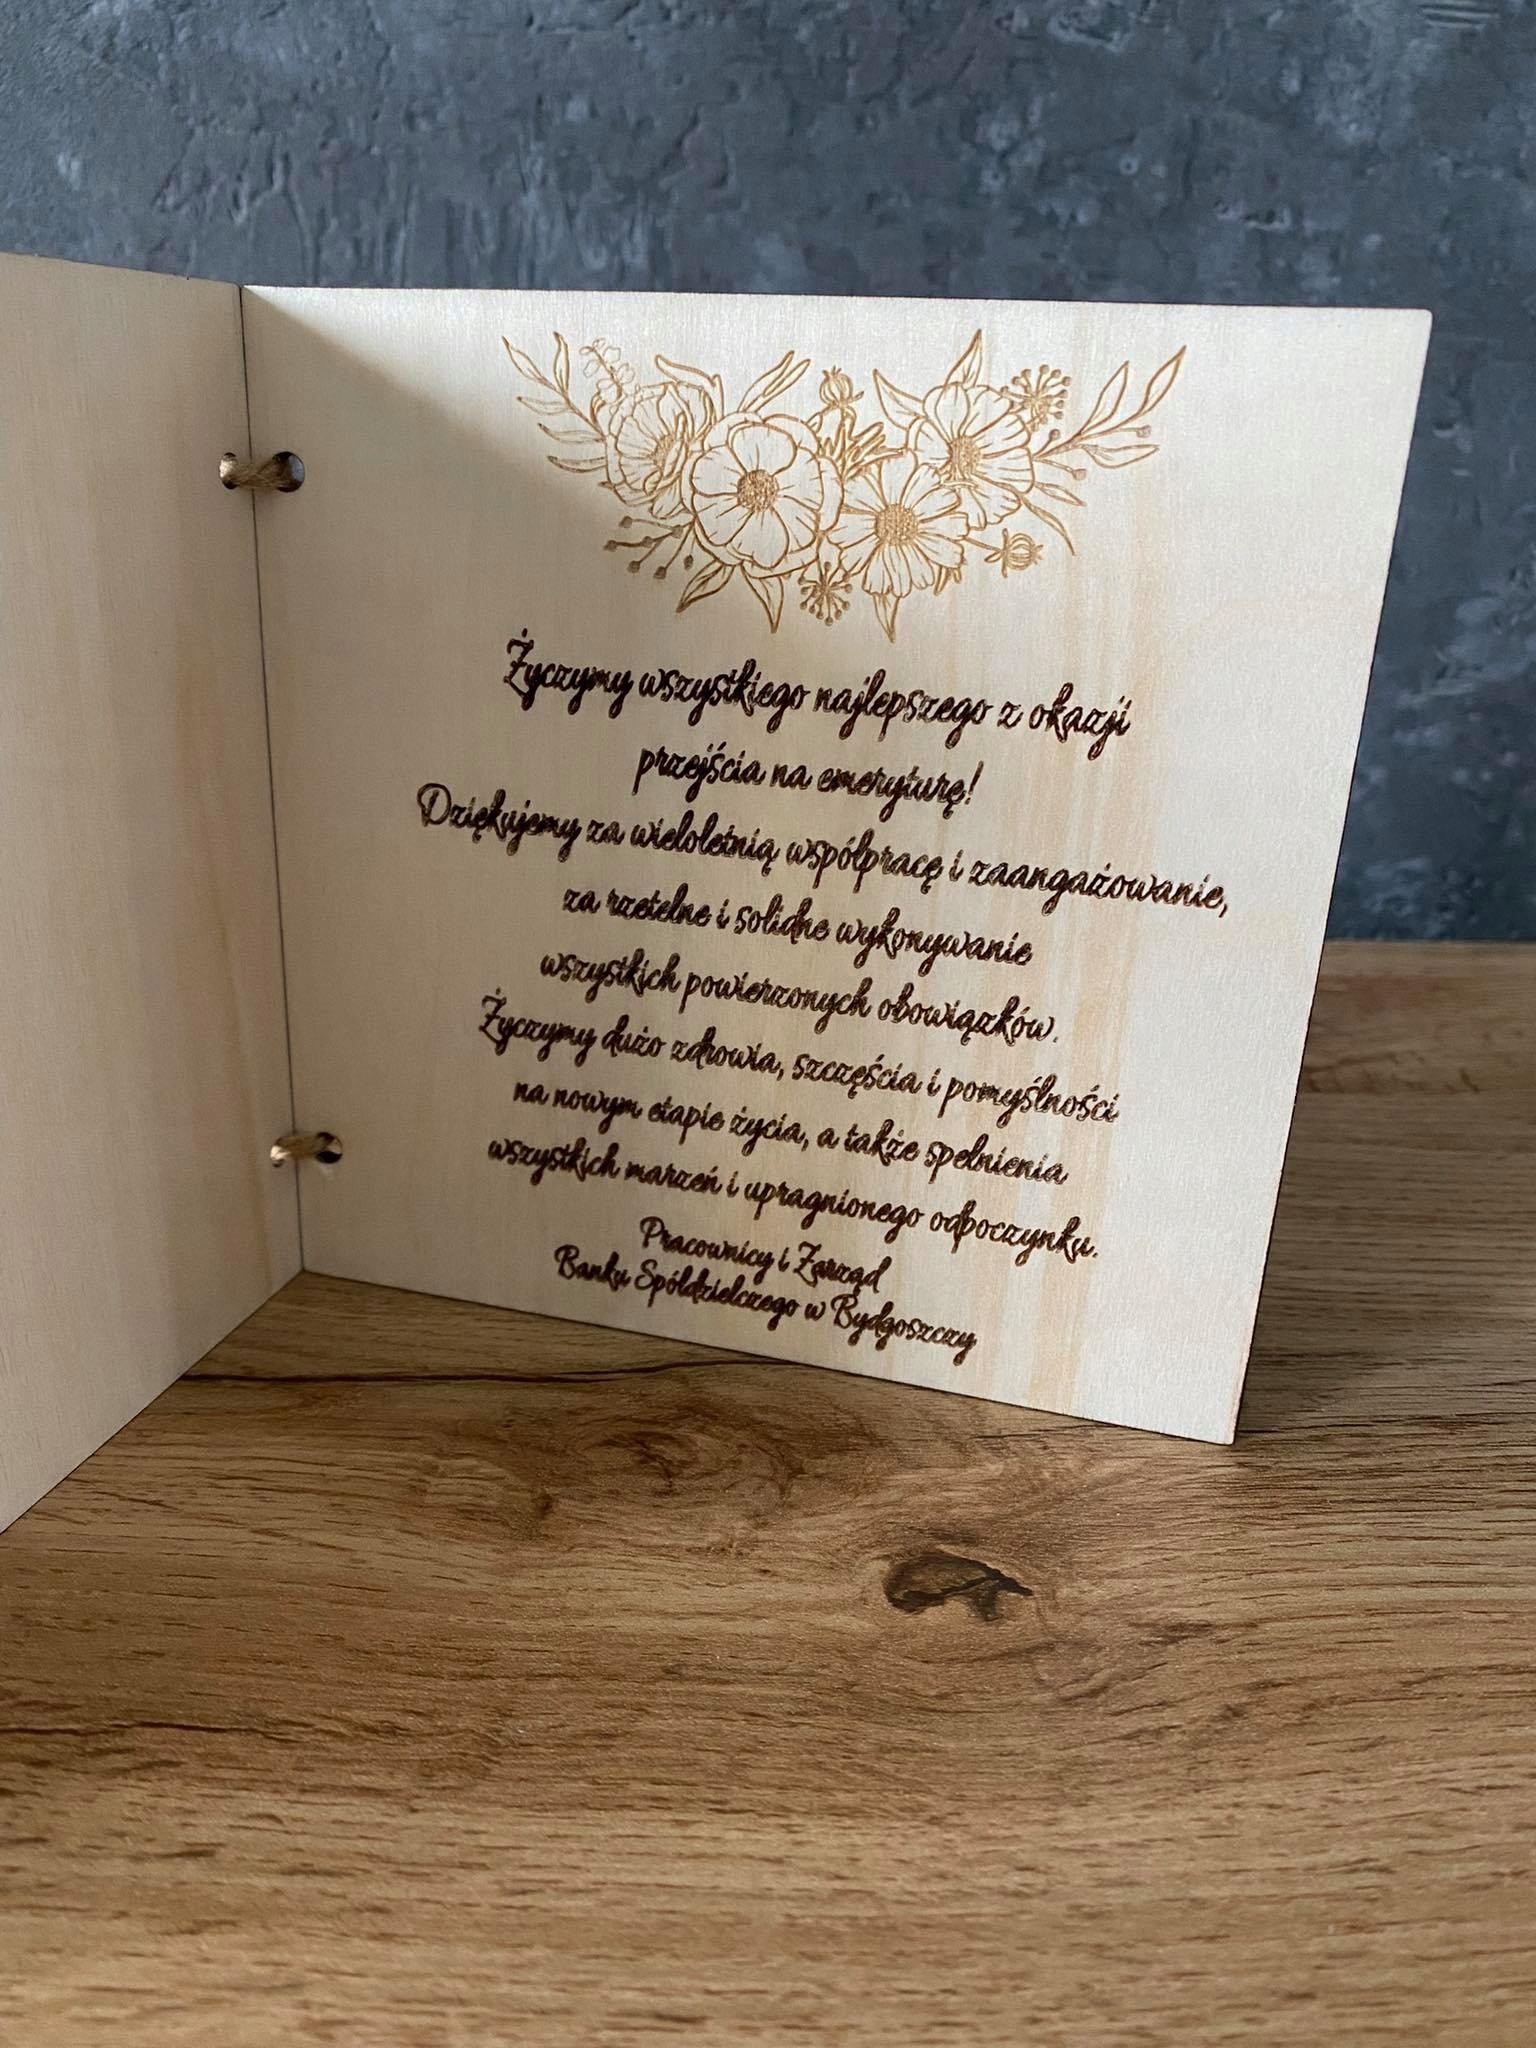 Życzymy wszystkiego najlepszego z okazji
przejścia na emeryturę!
Dziękujemy za wieloletnią współpracę i zaangażowanie,
za rzetelne i solidne wykonywanie
wszystkich powierzonych obowiązków.
Życzymy dużo zdrowia, szczęścia i pomyślności
na nowym etapie życia, a także spełnienia
wszystkich marzeń i upragnionego odpoczynku.
Pracownicy i Zarząd
Banku Spółdzielczego w Bydgoszczy